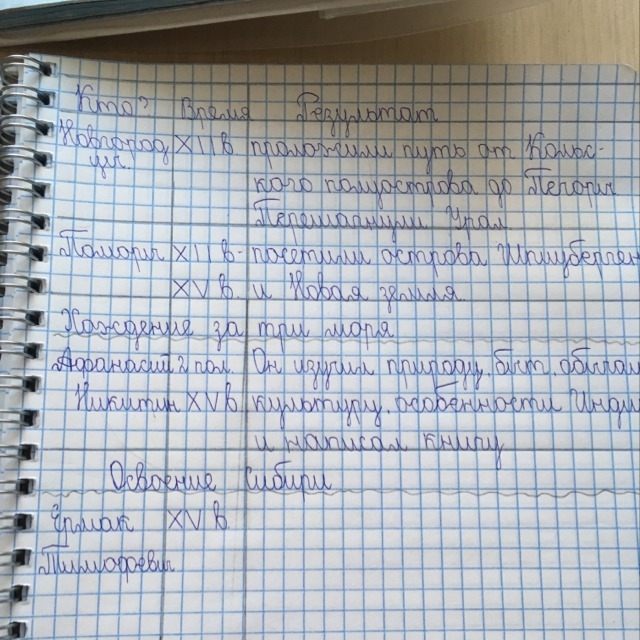 Кто? Время Результат
Новгород XII в проложили путь от Кольс-
цы. кого полуострова до Печоры
Перешагнули Урал
Поморы XII в- посетили острова Шпицберген
XV в. и Новая земля.
Хождение за три моря
Афанасий 2 пол. Он изучил природу, быт, обычаи
Никитин XV в культуру, особенности Инди
и написал книгу
Освоение Сибири
Ермак XV в
Тимофеевич